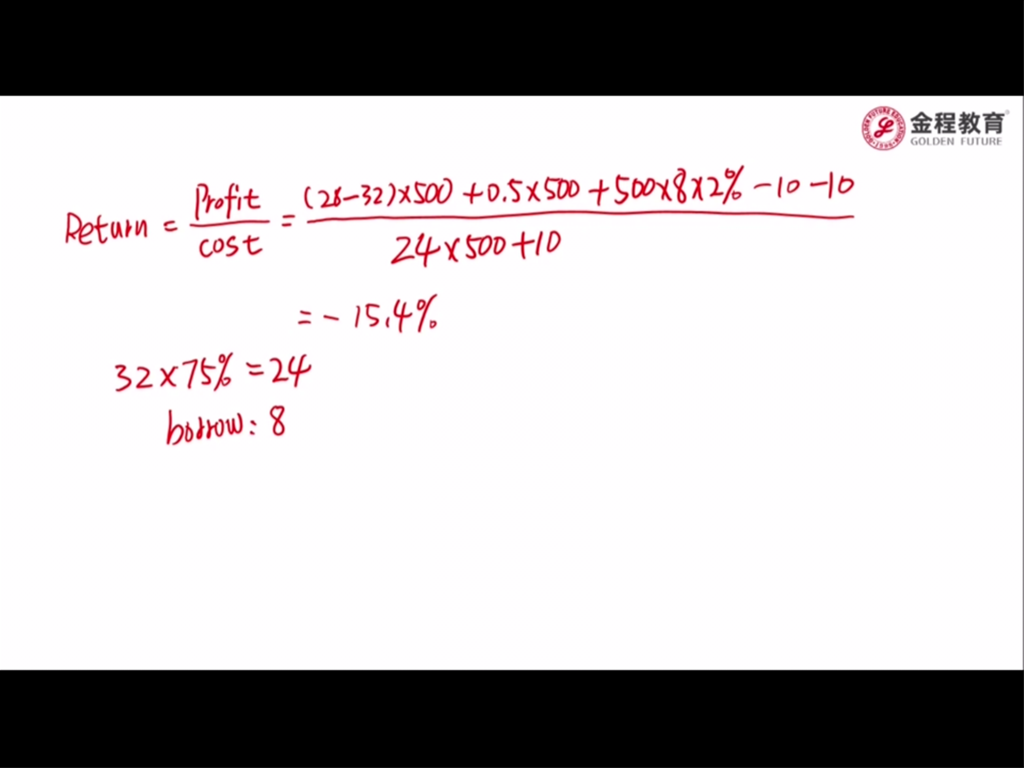 金程教育
GOLDEN FUTURE
Return = Profit/cost = ((28-32)×500 + 0.5×500 + 500×8×2% - 10 - 10)/(24×500+10)
= - 15.4%
32×75% = 24
borrow: 8